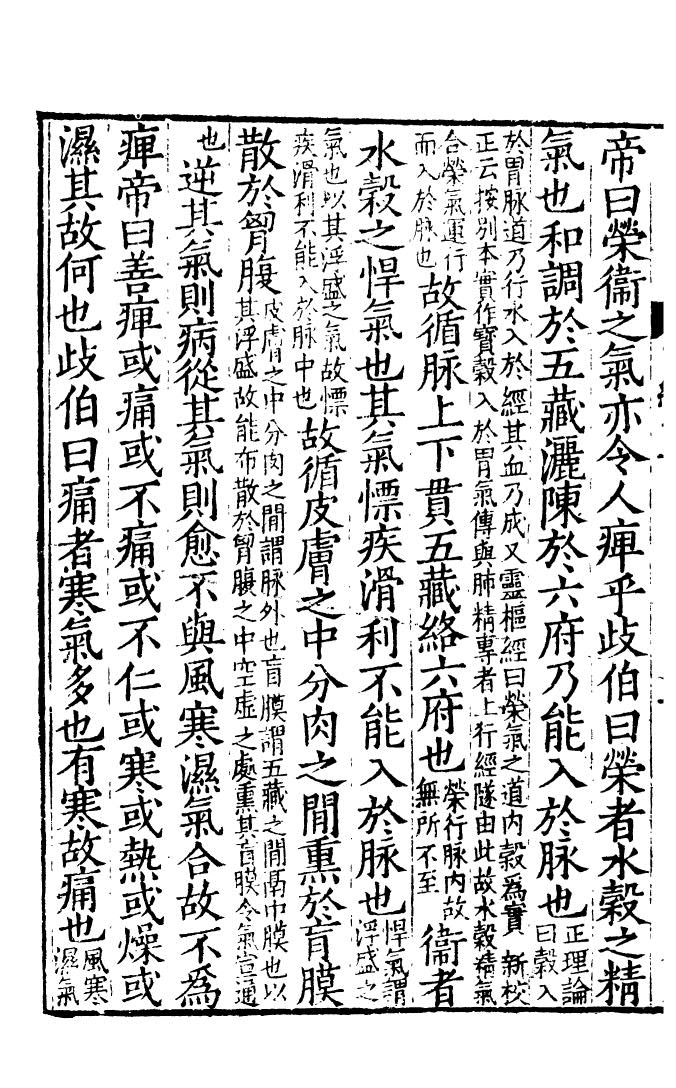 帝曰榮衞之氣亦令人痺乎歧伯曰榮者水穀之精
氣也和調於五藏灑陳於六府乃能入於脉也
正理論
曰穀入
於胃脉道乃行水入於經其血乃成又靈樞經曰榮氣之道内穀爲實 新校
正云按别本實作寳穀入於胃氣傳與肺精專者上行經隧由此故水穀精氣
合榮氣運行
而入於脉也
故循脉上下貫五藏絡六府也
榮行脉内故
無所不至
衞者
水穀之悍氣也其氣慓疾滑利不能入於脉也
悍氣謂
浮盛之
氣也以其浮盛之氣故慓
疾滑利不能入於脉中也
故循皮膚之中分肉之間熏於肓膜
散於胷腹
皮膚之中分肉之間謂脉外也肓膜謂五藏之間鬲中膜也以
其浮盛故能布散於胷腹之中空虛之處熏其肓膜令氣宣通
也
逆其氣則病從其氣則愈不與風寒濕氣合故不爲
痺帝曰善痺或痛或不痛或不仁或寒或熱或燥或
濕其故何也歧伯曰痛者寒氣多也有寒故痛也
風寒
濕氣